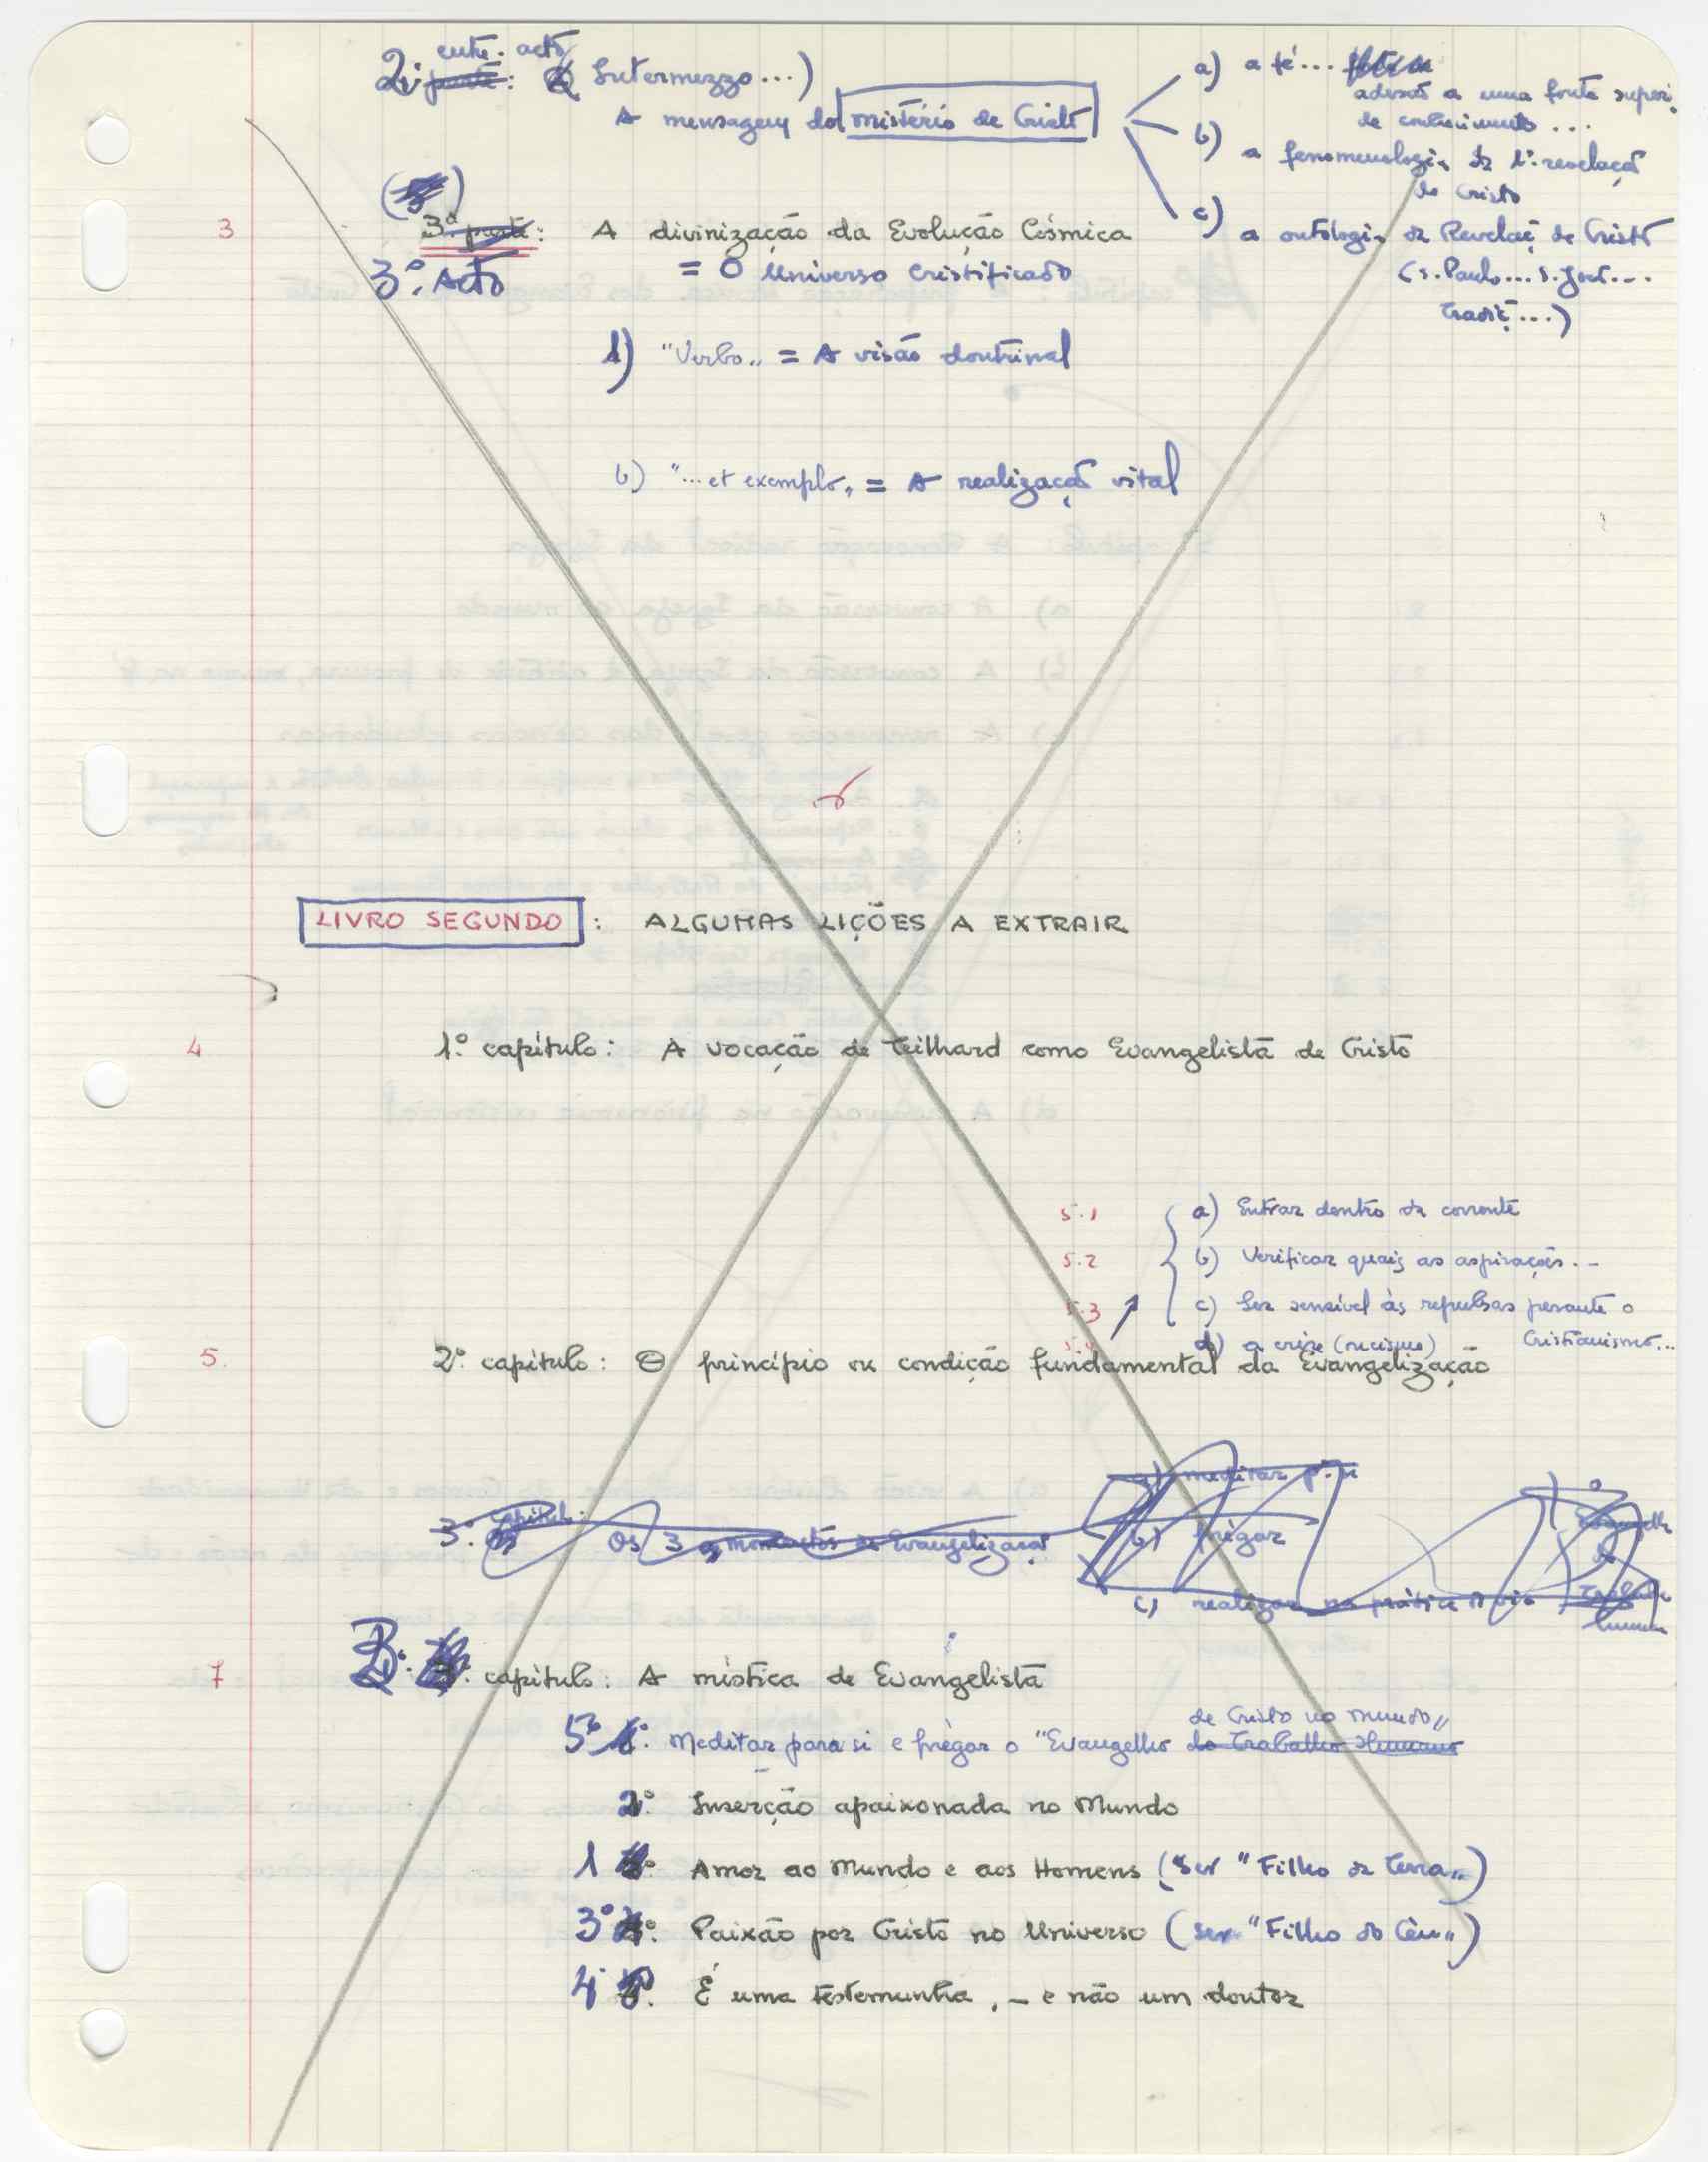 entre-acto
2º parte: (Intermezzo...)
A mensagem do mistério de Cristo
a) a fé...
adesão a uma fonte super.
de conhecimento ...
b) a fenomenologia da revelação
de Cristo
c) a ontologia da Revelaç. de Cristo
(S. Paulo... S. João...
Tradiç...)
3 3ª parte: A divinização da Evolução Cósmica
3º. Acto = O Universo Cristificado
1) "Verbo" = A visão doutrinal
b) "...et exemplo" = A realização vital
LIVRO SEGUNDO : ALGUMAS LIÇÕES A EXTRAIR
4 1º. capítulo: A vocação de Teilhard como Evangelista de Cristo
5.1 a) Entrar dentro da corrente
5.2 b) Verificar quais as aspirações...
5.3 c) Ser sensível às repulsas perante o
Cristianismo...
5.4 d) a crise
5. 2º. capítulo: O princípio ou condição fundamental da Evangelização
a) meditar p. si
3º. capítulo: Os 3 momentos da Evangelização
b) prègar
c) realizar na prática
o Evangelho do Trabalho humano
7 3º. capítulo: A mística de Evangelista
de Cristo no mundo"
5º 1º. Meditar para si e prègar o "Evangelho do Trabalho Humano
2º. Inserção apaixonada no Mundo
1 Amor ao Mundo e aos Homens (ser "Filho da Terra")
3º Paixão por Cristo no Universo (ser "Filho do Céu")
4º É uma testemunha, – e não um doutor